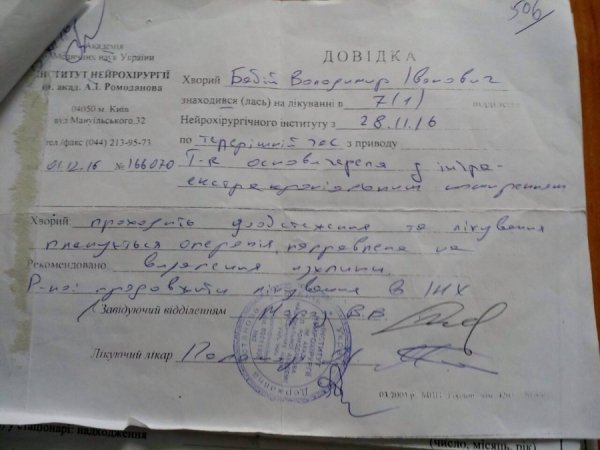 506
Академія
Медичних наук України
ІНСТИТУТ НЕЙРОХІРУРГІЇ
ім. акад. А.П. Ромоданова
04050 м. Київ
вул Мануїльського.32
тел /факс (044) 213-95-73
01.12.16 № 166070
ДОВІДКА
Хворий Бабій Володимир Іванович
знаходився (лась) на лікуванні в 7(1)
Нейрохірургічного інституту з 28.11.16
по теперішній час з приводу
Т-в основи черепа з інтра-
екстракраніальним
Хворий проходить дообстеження та лікування
планується операція направлена на
Рекомендовано видалення пухлини.
Р-но: продовжити лікування в ІНХ
Завідуючий відділенням В.В.
Лікуючий лікар
Державна
у стаціонарі: надходження
(число, місяць, рік)